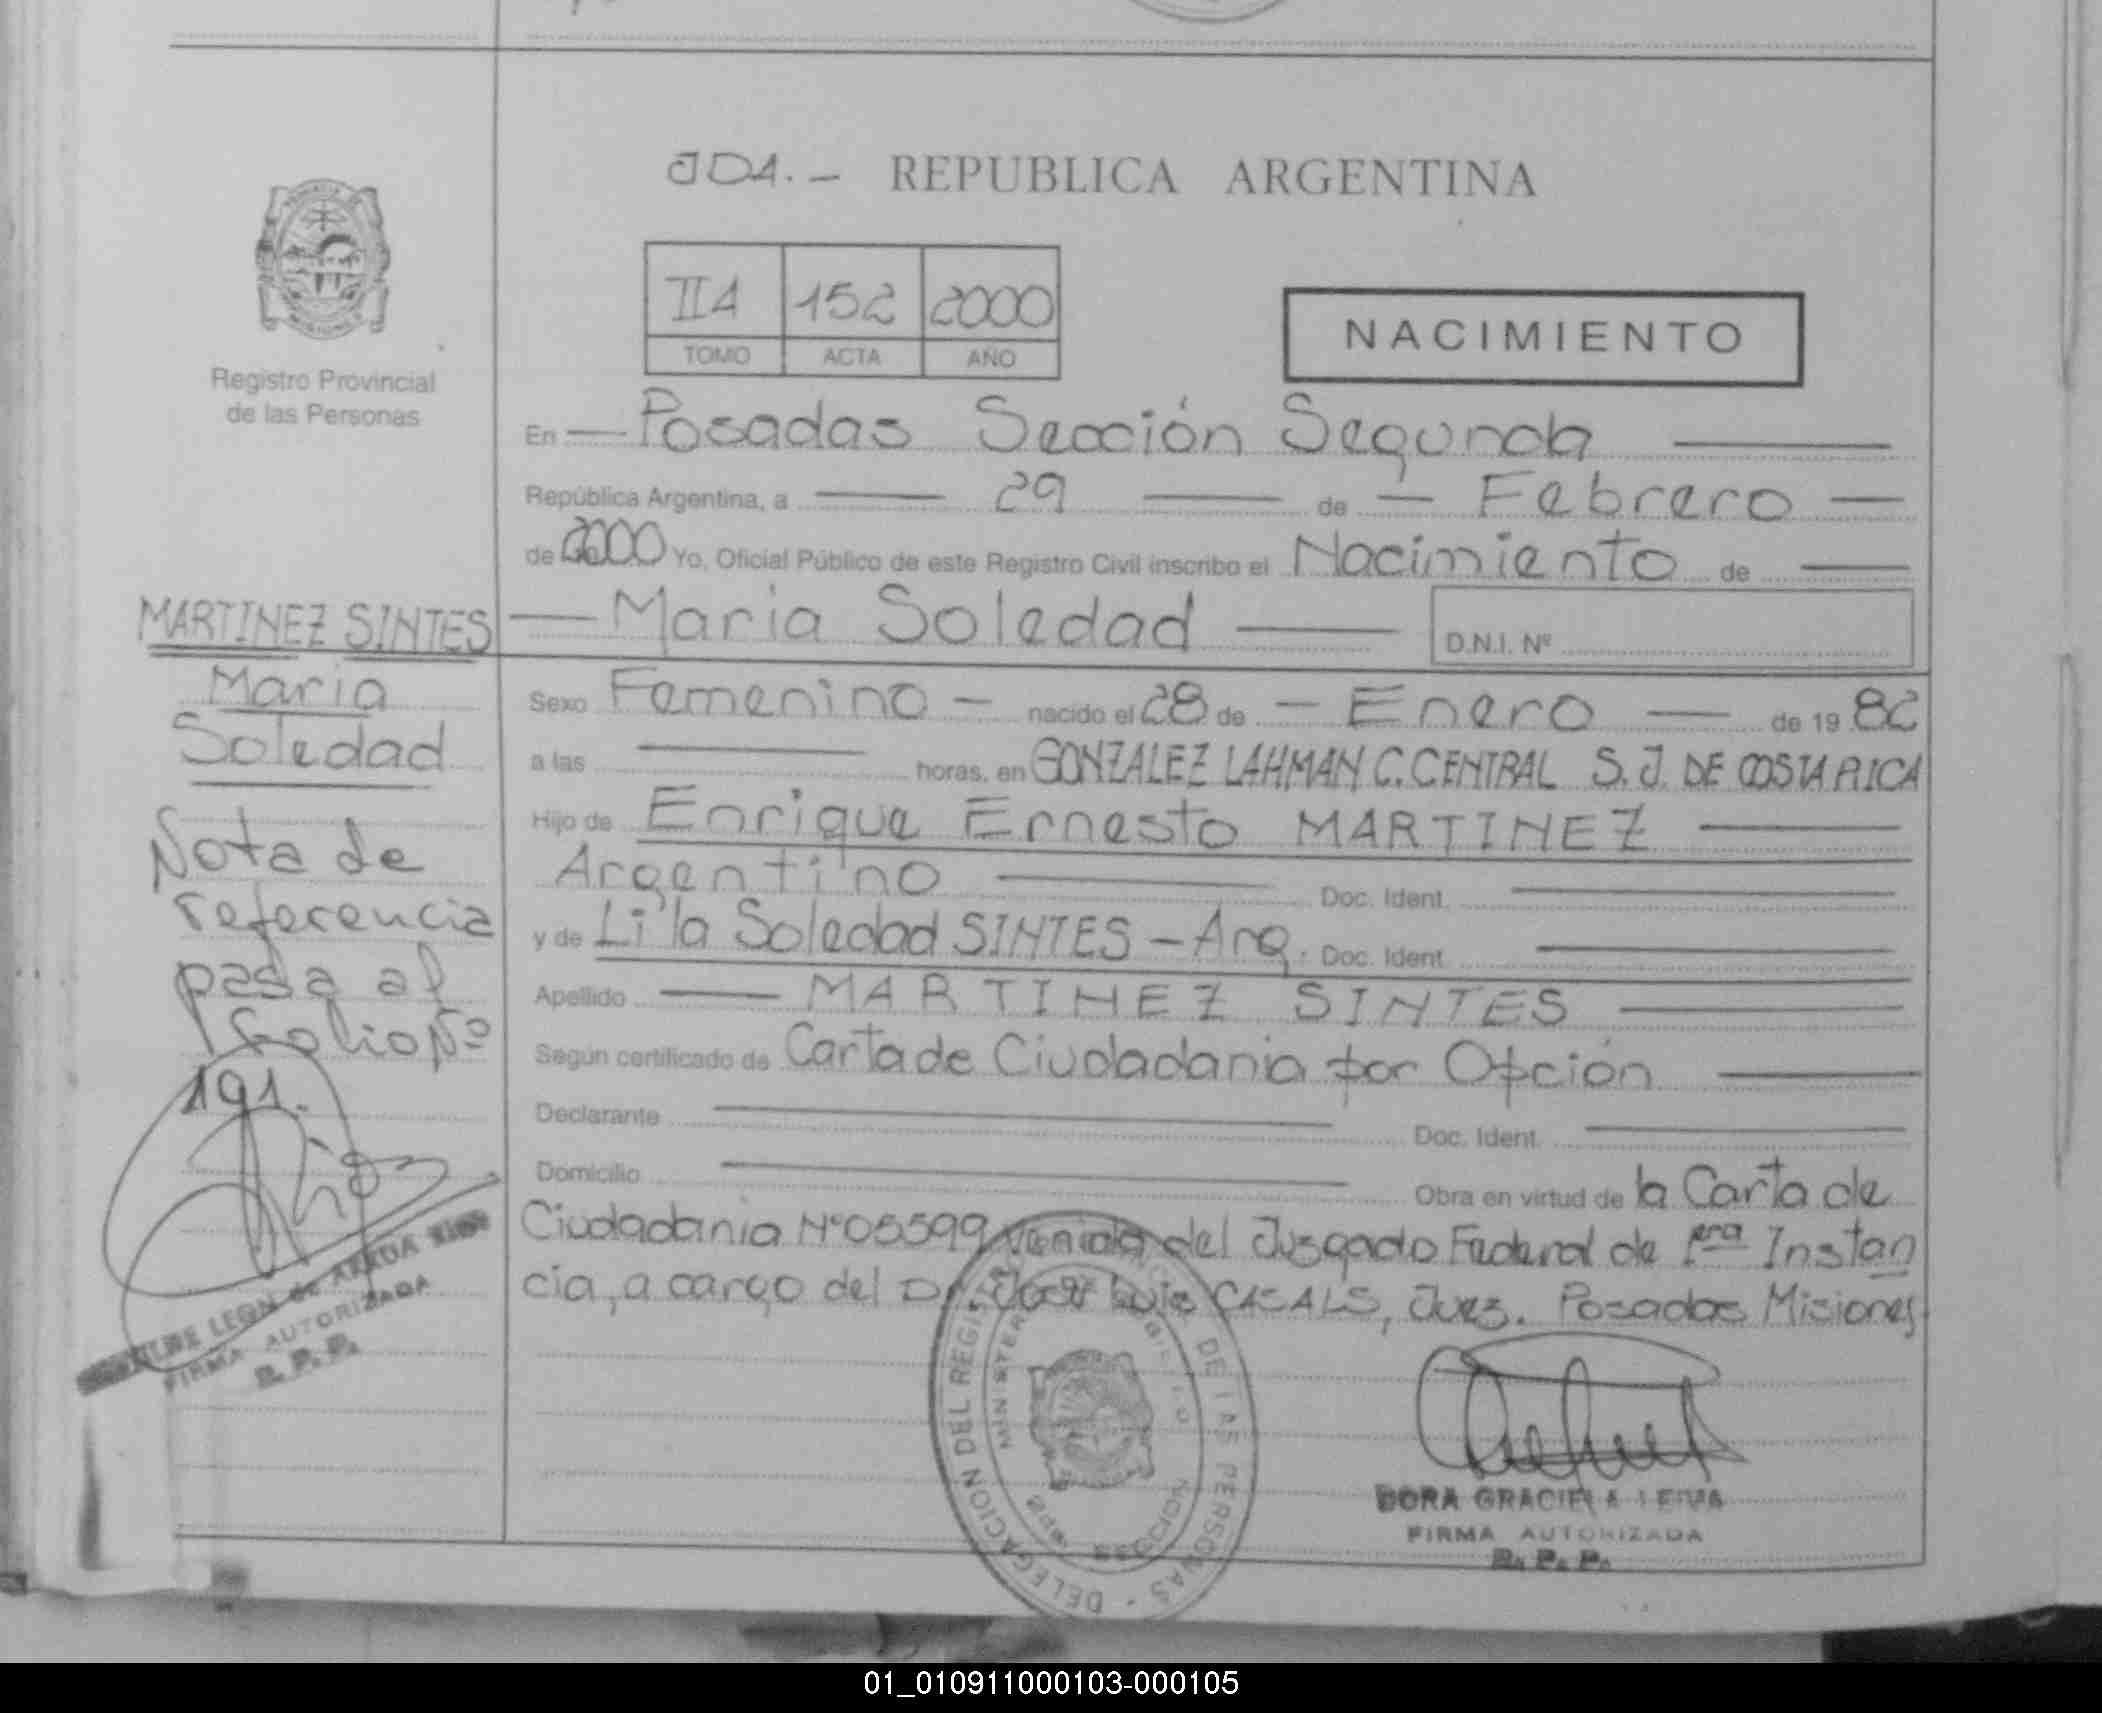 JDA.- REPUBLICA ARGENTINA
IIA 152 2000
TOMO ACTA AÑO
NACIMIENTO
Registro Provincial
de las Personas
En Posadas Sección Segunda
República Argentina, a 29 de Febrero
de 2000 Yo, Oficial Público de este Registro Civil inscribo el Nacimiento de
Maria Soledad D.N.I. Nº
Sexo Femenino - nacido el 28 de - Enero de 19 82
a las horas, en GONZALEZ LAHMAN C. CENTRAL S. J. DE COSTA RICA
Hijo de Enrique Ernesto MARTINEZ
Argentino Doc. Ident.
y de Lila Soledad SINTES - Arg. Doc. Ident.
Apellido MARTINEZ SINTES
Según certificado de Carta de Ciudadania por Opción
Declarante Doc. Ident.
Domicilio Obra en virtud de la Carta de
Ciudadania Nº 05599 venida del Juzgado Federal de 1era Instan
cia, a cargo del Dr. José Luis CASALS, Juez. Posadas Misiones
MARTINEZ SINTES
Maria
Soledad
Nota de
referencia
pasa al
folio Nº
191.
LEON de ARRUA
FIRMA AUTORIZADA
R. P. P.
DELEGACION DEL REGISTRO DE LAS PERSONAS
DORA GRACIELA LEIVA
FIRMA AUTORIZADA
R. P. P.
01_010911000103-000105